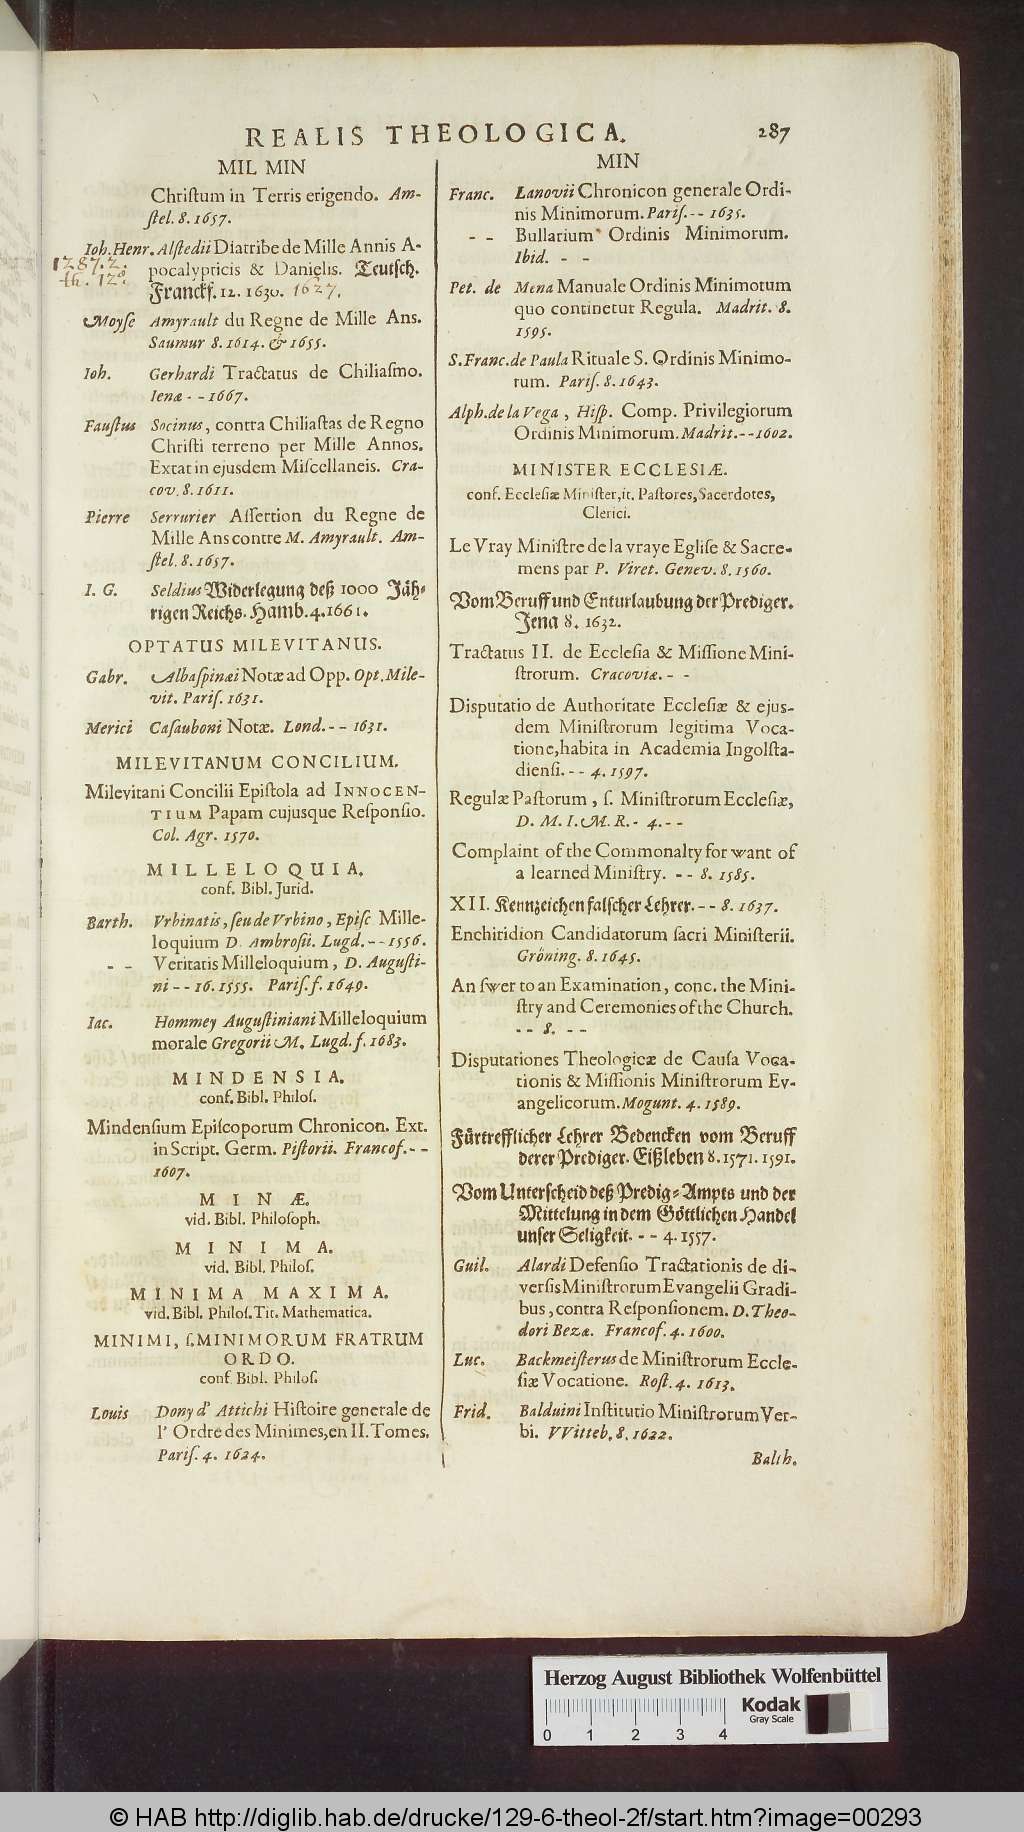 REALIS THEOLOGICA. 287
MIL MIN
Chriſtum in Terris erigendo. Am-
ſtel. 8. 1657.
Ioh. Henr. Alſtedii Diatribe de Mille Annis A-
pocalypticis & Danielis. Teutſch.
Franckf. 12. 1630. 1627.
1287. 2.
th. 12°.
Moyſe Amyrault du Regne de Mille Ans.
Saumur 8. 1614. & 1655.
Ioh. Gerhardi Tractatus de Chiliaſmo.
Ienæ - - 1667.
Fauſtus Socinus, contra Chiliaſtas de Regno
Chriſti terreno per Mille Annos.
Extat in ejusdem Miſcellaneis. Cra-
cov. 8. 1611.
Pierre Serrurier Aſſertion du Regne de
Mille Ans contre M. Amyrault. Am-
ſtel. 8. 1657.
I. G. Seldius Widerlegung deß 1000 Jäh-
rigen Reichs. Hamb. 4. 1661.
OPTATUS MILEVITANUS.
Gabr. Albaſpinæi Notæ ad Opp. Opt. Mile-
vit. Pariſ. 1631.
Merici Caſauboni Notæ. Lond. - - 1631.
MILEVITANUM CONCILIUM.
Milevitani Concilii Epiſtola ad INNOCEN-
TIUM Papam cujusque Reſponſio.
Col. Agr. 1570.
MILLELOQUIA.
conf. Bibl. Jurid.
Barth. Vrbinatis, ſeu de Vrbino, Epiſc Mille-
loquium D. Ambroſii. Lugd. - - 1556.
- - Veritatis Milleloquium, D. Auguſti-
ni - - 16. 1555. Pariſ. f. 1649.
Iac. Hommey Auguſtiniani Milleloquium
morale Gregorii M. Lugd. f. 1683.
MINDENSIA.
conf. Bibl. Philoſ.
Mindenſium Epiſcoporum Chronicon. Ext.
in Script. Germ. Piſtorii. Francof. - -
1607.
MINÆ.
vid. Bibl. Philoſoph.
MINIMA.
vid. Bibl. Philoſ.
MINIMA MAXIMA.
vid. Bibl. Philoſ. Tit. Mathematica.
MINIMI, ſ. MINIMORUM FRATRUM
ORDO.
conf. Bibl. Philoſ.
Louis Dony d' Attichi Hiſtoire generale de
l' Ordre des Minimes, en II. Tomes.
Pariſ. 4. 1624.
MIN
Franc. Lanovii Chronicon generale Ordi-
nis Minimorum. Pariſ. - - 1635.
- - Bullarium Ordinis Minimorum.
Ibid. - -
Pet. de Mena Manuale Ordinis Minimorum
quo continetur Regula. Madrit. 8.
1595.
S. Franc. de Paula Rituale S. Ordinis Minimo-
rum. Pariſ. 8. 1643.
Alph. de la Vega, Hiſp. Comp. Privilegiorum
Ordinis Minimorum. Madrit. - - 1602.
MINISTER ECCLESIÆ.
conf. Eccleſiæ Miniſter, it. Paſtores, Sacerdotes,
Clerici.
Le Vray Miniſtre de la vraye Egliſe & Sacre-
mens par P. Viret. Genev. 8. 1560.
Vom Beruff und Enturlaubung der Prediger.
Jena 8. 1632.
Tractatus II. de Eccleſia & Miſſione Mini-
ſtrorum. Cracoviæ. - -
Disputatio de Authoritate Eccleſiæ & ejus-
dem Miniſtrorum legitima Voca-
tione, habita in Academia Ingolſta-
dienſi. - - 4. 1597.
Regulæ Paſtorum, ſ. Miniſtrorum Eccleſiæ,
D. M. I. M. R. - 4. - -
Complaint of the Commonalty for want of
a learned Miniſtry. - - 8. 1585.
XII. Kennzeichen falſcher Lehrer. - - 8. 1637.
Enchiridion Candidatorum ſacri Miniſterii.
Gröning. 8. 1645.
An ſwer to an Examination, conc. the Mini-
ſtry and Ceremonies of the Church.
- - 8. - -
Disputationes Theologicæ de Cauſa Voca-
tionis & Miſſionis Miniſtrorum Ev-
angelicorum. Mogunt. 4. 1589.
Fürtrefflicher Lehrer Bedencken vom Beruff
derer Prediger. Eißleben 8. 1571. 1591.
Vom Unterſcheid deß Predig-Ampts und der
Mittelung in dem Göttlichen Handel
unſer Seligkeit. - - 4. 1557.
Guil. Alardi Defenſio Tractationis de di-
verſis Miniſtrorum Evangelii Gradi-
bus, contra Reſponſionem. D. Theo-
dori Bezæ. Francof. 4. 1600.
Luc. Backmeiſterus de Miniſtrorum Eccle-
ſiæ Vocatione. Roſt. 4. 1613.
Frid. Balduini Inſtitutio Miniſtrorum Ver-
bi. VVitteb. 8. 1622.
Balth.
Herzog August Bibliothek Wolfenbüttel
Kodak
Gray Scale
0 1 2 3 4
© HAB http://diglib.hab.de/drucke/129-6-theol-2f/start.htm?image=00293